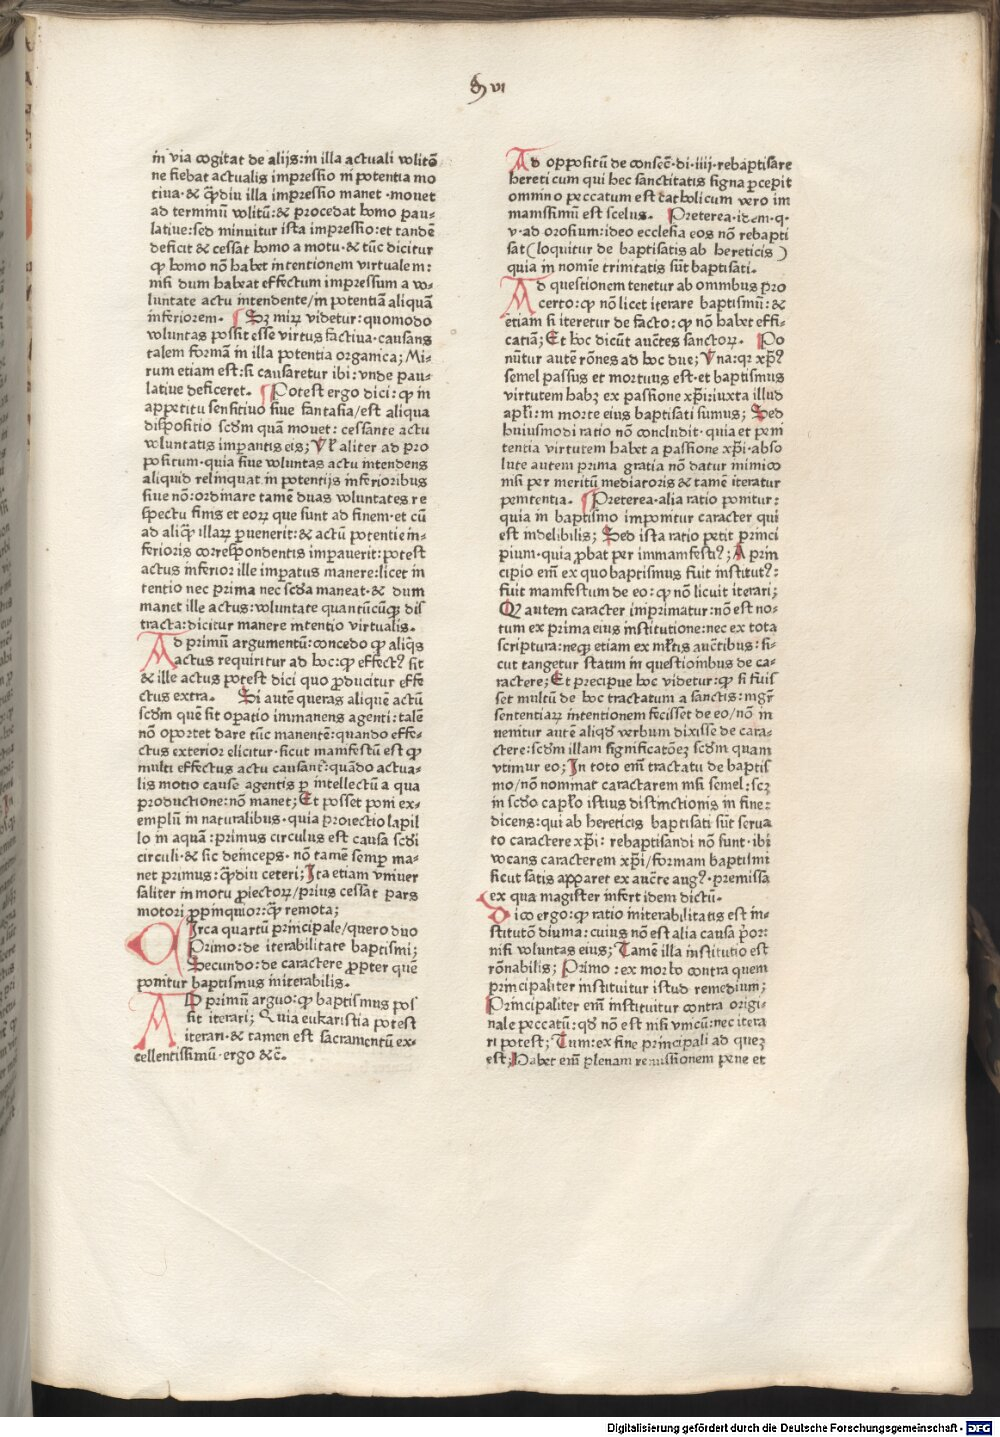 ꝯ vi
in via cogitat de alijs:in illa actuali volitō
ne fiebat actualis impressio in potentia mo
tiua·& q̄diu illa impressio manet·mouet
ad terminū volitū:& procedat homo pau⸗
latiue:sed minuitur ista impressio:et tandē
deficit & cessat homo a motu·& tūc dicitur
ꝙ homo nō habet intentionem virtualem:
nisi dum habeat effectum impressum a vo⸗
luntate actu intendente/in potentiā aliquā
inferiorem· Sꝫ miꝝ videtur:quomodo
voluntas possit esse virtus factiua·causans
talem formā in illa potentia organica; Mi⸗
rum etiam est:si causaretur ibi:vnde pau⸗
latiue deficeret· Potest ergo dici:ꝙ in
appetitu sensitiuo siue fantasia/est aliqua
dispositio scdm quā mouet:cessante actu
voluntatis imꝑantis eis; Vl̄ aliter ad pro
positum·quia siue voluntas actu intendens
aliquid relinquat in potentijs inferioribus
siue nō:ordinare tamē duas voluntates re
spectu finis et eoꝝ que sunt ad finem·et cū
ad aliq̄ illaꝝ ꝑuenerit:& actū potentie in⸗
ferioris correspondentis imꝑauerit:potest
actus inferior ille imꝑatus manere:licet in
tentio nec prima nec scda maneat·& dum
manet ille actus:voluntate quantūcūqꝫ dis
tracta:dicitur manere intentio virtualis·
Ad primū argumentū:concedo ꝙ aliq̄s
actus requiritur ad hoc:ꝙ effectꝰ sit
& ille actus potest dici quo ꝓducitur effe
ctus extra· Si autē queras aliquē actū
scdm quē sit oꝑatio immanens agenti:talē
nō oportet dare tūc manentē:quando effe⸗
ctus exterior elicitur·sicut manifestū est ꝙ
multi effectus actu causant̄:quādo actua⸗
lis motio cause agentis ꝑ intellectū a qua
productione:nō manet; Et posset poni ex⸗
emplū in naturalibus·quia proiectio lapil
lo in aquā:primus circulus est causa scdi
circuli·& sic deinceps·nō tamē semꝑ ma⸗
net primus:q̄diu ceteri; Ita etiam vniuer
saliter in motu ꝓiectoꝝ/prius cessat pars
motori ꝓpinquior:q̄ remota;
Circa quartū principale/quero duo
Primo:de iterabilitate baptismi;
Secundo:de caractere ꝓpter quē
ponitur baptismus initerabilis·
AD primū arguo:ꝙ baptismus pos
sit iterari; Quia eukaristia potest
iterari·& tamen est sacramentū ex⸗
cellentissimū·ergo &c̄·
Ad oppositū de consec̄·di·iiij·rebaptisare
hereticum qui hec sanctitatis signa ꝑcepit
omnino peccatum est catholicum vero im
manissimū est scelus· Preterea·idem·q·
v·ad orosium:ideo ecclesia eos nō rebapti
sat(loquitur de baptisatis ab hereticis)
quia in nomīe trinitatis sūt baptisati·
Ad questionem tenetur ab omnibus pro
certo:ꝙ nō licet iterare baptismū:&
etiam si iteretur de facto:ꝙ nō habet effi⸗
catiā; Et hoc dicūt auctēs sanctoꝝ· Po
nūtur autē rōnes ad hoc due; Vna:qꝛ xp̄ꝰ
semel passus et mortuus est·et baptismus
virtutem habꝫ ex passione xp̄i:iuxta illud
apl̄i:in morte eius baptisati sumus; Sed
huiusmodi ratio nō concludit·quia et peni
tentia virtutem habet a passione xp̄i·abso
lute autem prima gratia nō datur inimico
nisi per meritū mediatoris & tamē iteratur
penitentia· Preterea·alia ratio ponitur:
quia in baptismo imponitur caracter qui
est indelibilis; Sed ista ratio petit princi
pium·quia ꝓbat per immanifestiꝰ; A prin
cipio em̄ ex quo baptismus fuit institutꝰ:
fuit manifestum de eo:ꝙ nō licuit iterari;
Qꝫ autem caracter imprimatur:nō est no⸗
tum ex prima eius institutione:nec ex tota
scriptura:neqꝫ etiam ex ml̄tis auctībus:si⸗
cut tangetur statim in questionibus de ca⸗
ractere; Et precipue hoc videtur:ꝙ si fuis
set multū de hoc tractatum a sanctis:mgr̄
sententiaꝝ intentionem fecisset de eo/nō in
uenitur autē aliqd verbum dixisse de cara⸗
ctere:scdm illam significatōeꝫ scdm quam
vtimur eo; In toto em̄ tractatu de baptis
mo/nō nominat caractarem nisi semel:scꝫ
in scdo capl̄o istius distinctionis in fine:
dicens:qui ab hereticis baptisati sūt serua
to caractere xp̄i:rebaptisandi nō sunt·ibi
vocans caracterem xp̄i/formam baptismi
sicut satis apparet ex auctēe augꝰ·premissa
ex qua magister infert idem dictū·
Dico ergo:ꝙ ratio initerabilitatis est in⸗
stitutō diuina:cuius nō est alia causa ꝓor:
nisi voluntas eius; Tamē illa institutio est
rōnabilis; Primo:ex morbo contra quem
principaliter instituitur istud remedium;
Principaliter em̄ instituitur contra origi⸗
nale peccatū:qd nō est nisi vnicū:nec itera
ri potest; Tum:ex fine principali ad queꝫ
est; Habet em̄ plenam remissionem pene et
Digitalisierung gefördert durch die Deutsche Forschungsgemeinschaft - DFG